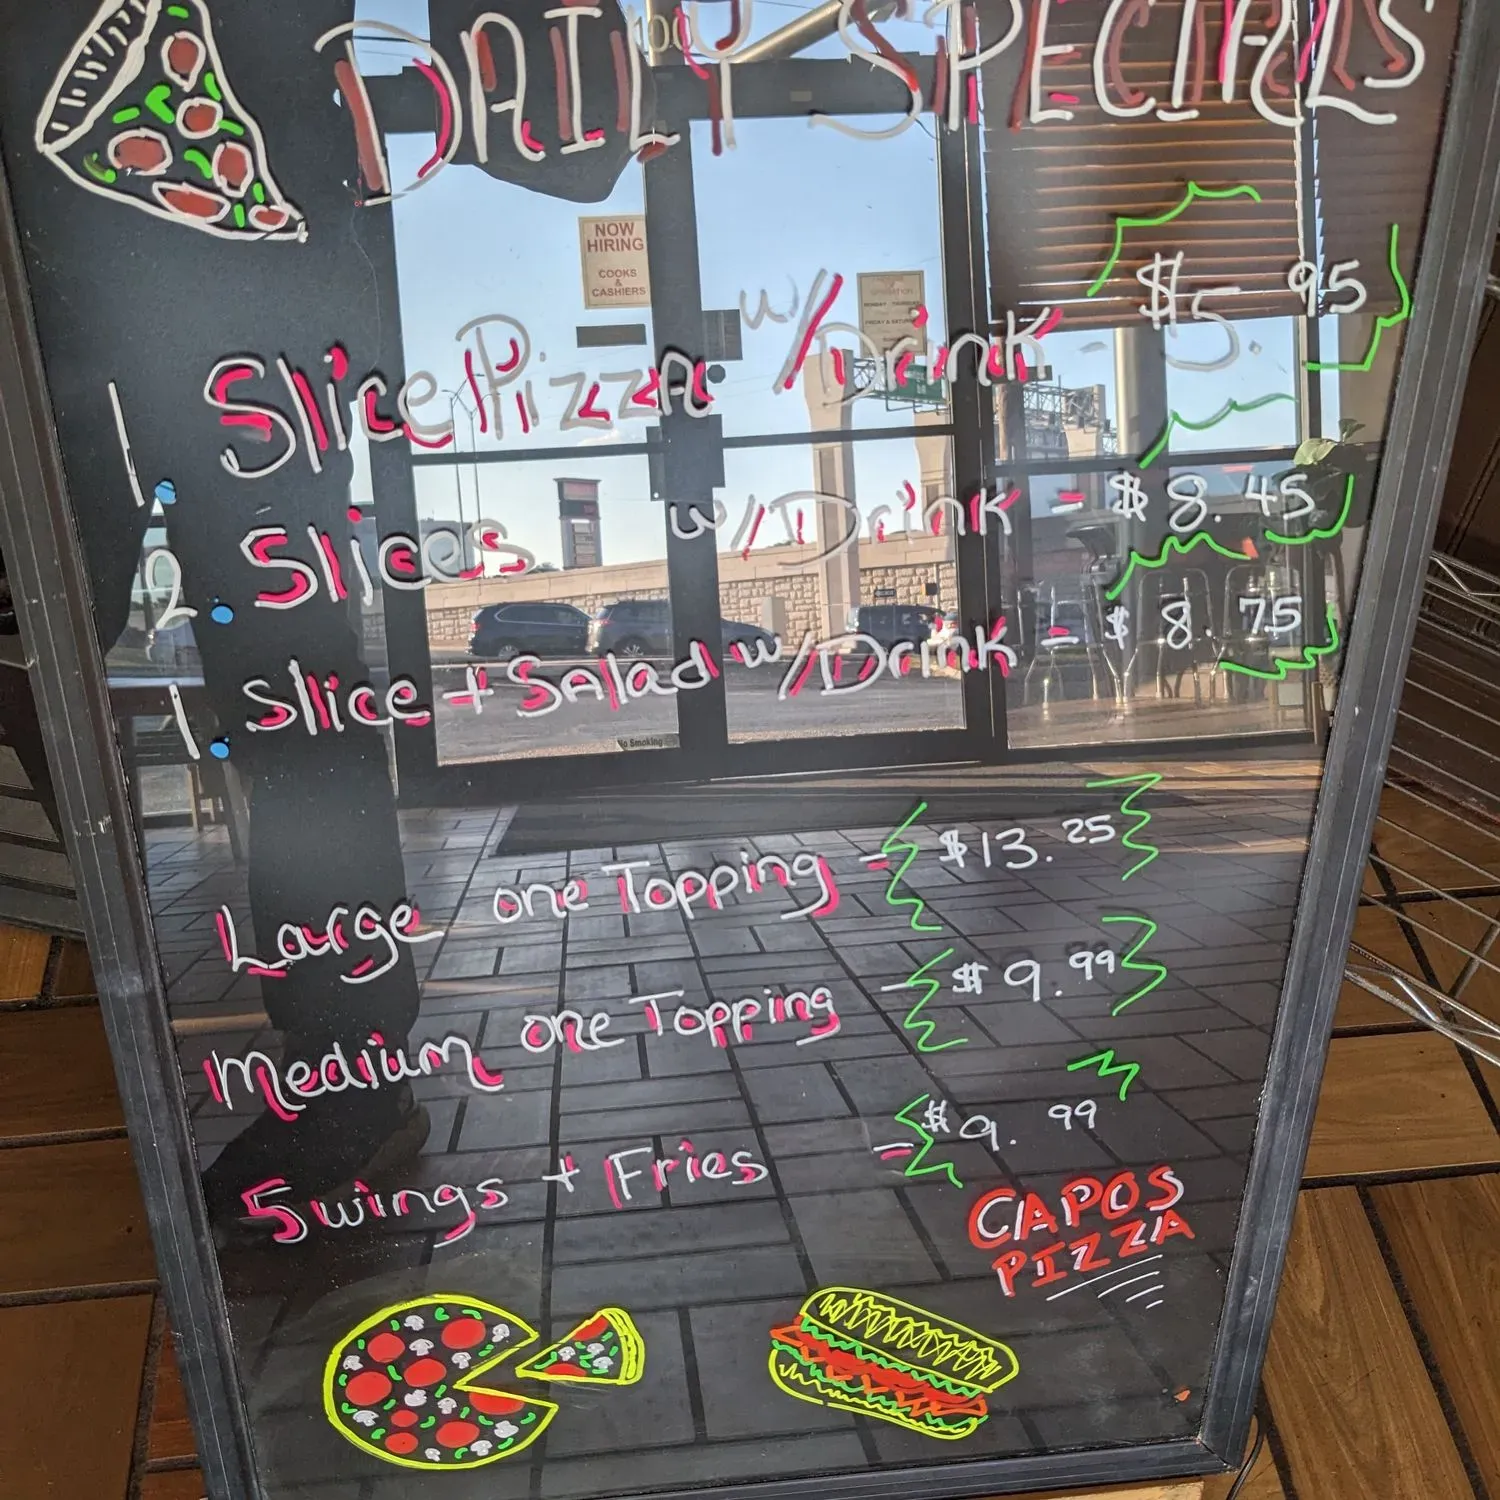 DAILY SPECIALS
NOW
HIRING
COOKS
&
CASHIERS
1. Slice Pizza w/Drink - $5.95
2. Slices w/Drink = $8.45
1. Slice + Salad w/Drink = $8.75
No Smoking
Large one Topping = $13.25
Medium one Topping - $9.99
5 wings + Fries = $9.99
CAPOS
PIZZA